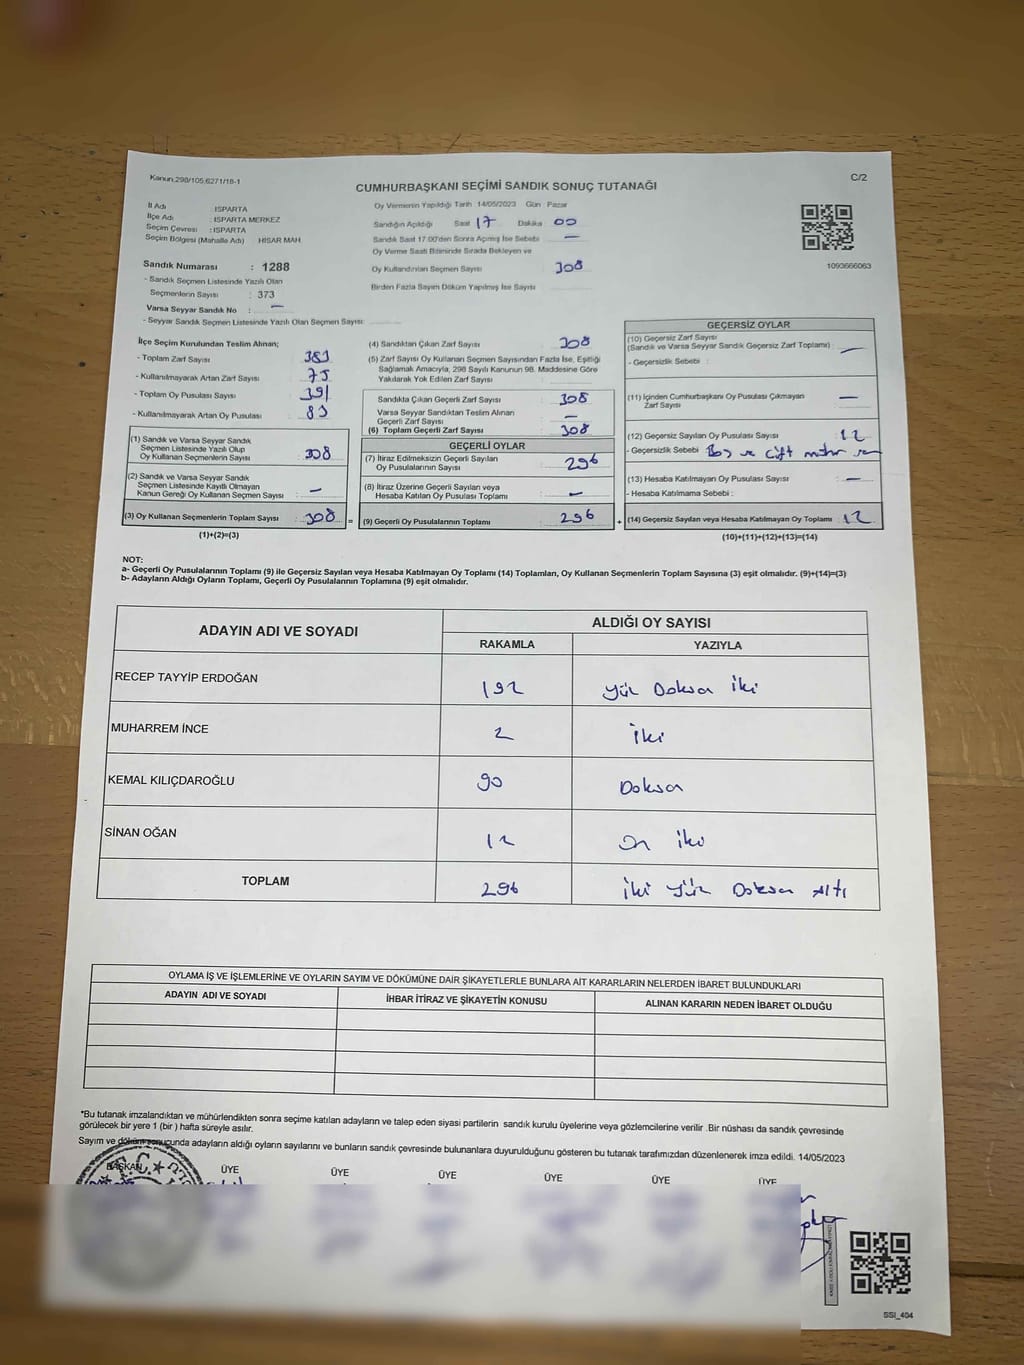 Kanun.298/105,6271/18-1
C/2
CUMHURBAŞKANI SEÇİMİ SANDIK SONUÇ TUTANAĞI
İl Adı : ISPARTA
İlçe Adı : ISPARTA MERKEZ
Seçim Çevresi : ISPARTA
Seçim Bölgesi (Mahalle Adı) HISAR MAH.
Sandık Numarası : 1288
- Sandık Seçmen Listesinde Yazılı Olan
Seçmenlerin Sayısı : 373
Varsa Seyyar Sandık No : —
- Seyyar Sandık Seçmen Listesinde Yazılı Olan Seçmen Sayısı:
Oy Vermenin Yapıldığı Tarih 14/05/2023 Gün : Pazar
Sandığın Açıldığı Saat 17 Dakika 00
Sandık Saat 17.00'den Sonra Açılmış İse Sebebi : —
Oy Verme Saati Bitiminde Sırada Bekleyen ve
Oy Kullandırılan Seçmen Sayısı : 308
Birden Fazla Sayım Döküm Yapılmış İse Sayısı
1093666063
İlçe Seçim Kurulundan Teslim Alınan;
- Toplam Zarf Sayısı : 383
- Kullanılmayarak Artan Zarf Sayısı : 75
- Toplam Oy Pusulası Sayısı : 391
- Kullanılmayarak Artan Oy Pusulası : 83
(1) Sandık ve Varsa Seyyar Sandık
Seçmen Listesinde Yazılı Olup
Oy Kullanan Seçmenlerin Sayısı : 308
(2) Sandık ve Varsa Seyyar Sandık
Seçmen Listesinde Kayıtlı Olmayan
Kanun Gereği Oy Kullanan Seçmen Sayısı : —
(3) Oy Kullanan Seçmenlerin Toplam Sayısı : 308
(1)+(2)=(3)
(4) Sandıktan Çıkan Zarf Sayısı : 308
(5) Zarf Sayısı Oy Kullanan Seçmen Sayısından Fazla İse, Eşitliği
Sağlamak Amacıyla, 298 Sayılı Kanunun 98. Maddesine Göre
Yakılarak Yok Edilen Zarf Sayısı :
Sandıkta Çıkan Geçerli Zarf Sayısı : 308
Varsa Seyyar Sandıktan Teslim Alınan
Geçerli Zarf Sayısı : —
(6) Toplam Geçerli Zarf Sayısı : 308
GEÇERLİ OYLAR
(7) İtiraz Edilmeksizin Geçerli Sayılan
Oy Pusulalarının Sayısı : 296
(8) İtiraz Üzerine Geçerli Sayılan veya
Hesaba Katılan Oy Pusulası Toplamı : —
(9) Geçerli Oy Pusulalarının Toplamı : 296
GEÇERSİZ OYLAR
(10) Geçersiz Zarf Sayısı
(Sandık ve Varsa Seyyar Sandık Geçersiz Zarf Toplamı) : —
- Geçersizlik Sebebi :
(11) İçinden Cumhurbaşkanı Oy Pusulası Çıkmayan
Zarf Sayısı : —
(12) Geçersiz Sayılan Oy Pusulası Sayısı : 12
- Geçersizlik Sebebi : Boş ve Çift mühür
(13) Hesaba Katılmayan Oy Pusulası Sayısı : —
- Hesaba Katılmama Sebebi :
(14) Geçersiz Sayılan veya Hesaba Katılmayan Oy Toplamı : 12
(10)+(11)+(12)+(13)=(14)
NOT:
a- Geçerli Oy Pusulalarının Toplamı (9) ile Geçersiz Sayılan veya Hesaba Katılmayan Oy Toplamı (14) Toplamları, Oy Kullanan Seçmenlerin Toplam Sayısına (3) eşit olmalıdır. (9)+(14)=(3)
b- Adayların Aldığı Oyların Toplamı, Geçerli Oy Pusulalarının Toplamına (9) eşit olmalıdır.
ADAYIN ADI VE SOYADI ALDIĞI OY SAYISI
RAKAMLA YAZIYLA
RECEP TAYYİP ERDOĞAN 192 yüz Doksan İki
MUHARREM İNCE 2 İki
KEMAL KILIÇDAROĞLU 90 Doksan
SİNAN OĞAN 12 On iki
TOPLAM 296 iki yüz Doksan Altı
OYLAMA İŞ VE İŞLEMLERİNE VE OYLARIN SAYIM VE DÖKÜMÜNE DAİR ŞİKAYETLERLE BUNLARA AİT KARARLARIN NELERDEN İBARET BULUNDUKLARI
ADAYIN ADI VE SOYADI İHBAR İTİRAZ VE ŞİKAYETİN KONUSU ALINAN KARARIN NEDEN İBARET OLDUĞU
*Bu tutanak imzalandıktan ve mühürlendikten sonra seçime katılan adayların ve talep eden siyasi partilerin sandık kurulu üyelerine veya gözlemcilerine verilir .Bir nüshası da sandık çevresinde
görülecek bir yere 1 (bir ) hafta süreyle asılır.
Sayım ve döküm sonucunda adayların aldığı oyların sayılarını ve bunların sandık çevresinde bulunanlara duyurulduğunu gösteren bu tutanak tarafımızdan düzenlenerek imza edildi. 14/05/2023
BAŞKAN ÜYE ÜYE ÜYE ÜYE ÜYE ÜYE
T.C.
SSI_404